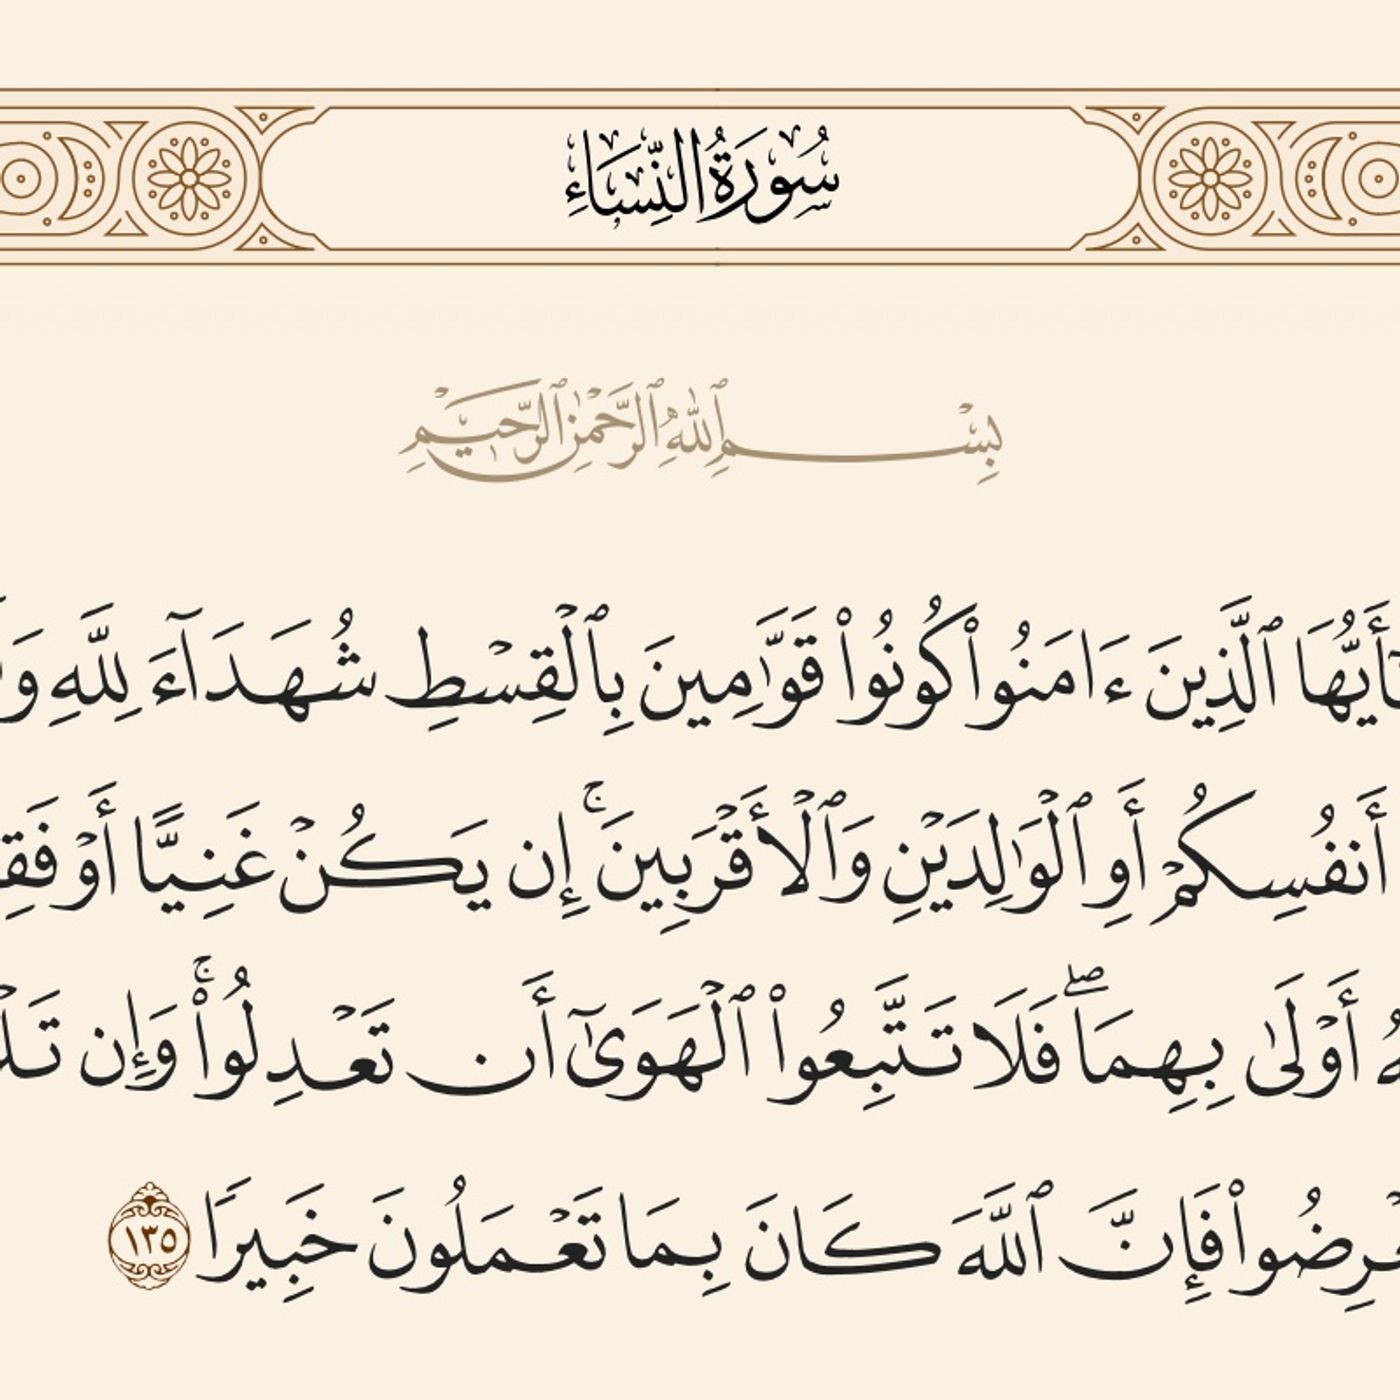 سُورَةُ النِّسَاءِ
بِسْمِ ٱللَّهِ ٱلرَّحْمَٰنِ ٱلرَّحِيمِ
ـَٰٓأَيُّهَا ٱلَّذِينَ ءَامَنُوا۟ كُونُوا۟ قَوَّٰمِينَ بِٱلْقِسْطِ شُهَدَآءَ لِلَّهِ وَ
أَنفُسِكُمْ أَوِ ٱلْوَٰلِدَيْنِ وَٱلْأَقْرَبِينَ ۚ إِن يَكُنْ غَنِيًّا أَوْ فَقِـ
ـهُ أَوْلَىٰ بِهِمَا ۖ فَلَا تَتَّبِعُوا۟ ٱلْهَوَىٰٓ أَن تَعْدِلُوا۟ ۚ وَإِن تَلْـ
ـعْرِضُوا۟ فَإِنَّ ٱللَّهَ كَانَ بِمَا تَعْمَلُونَ خَبِيرًا ١٣٥